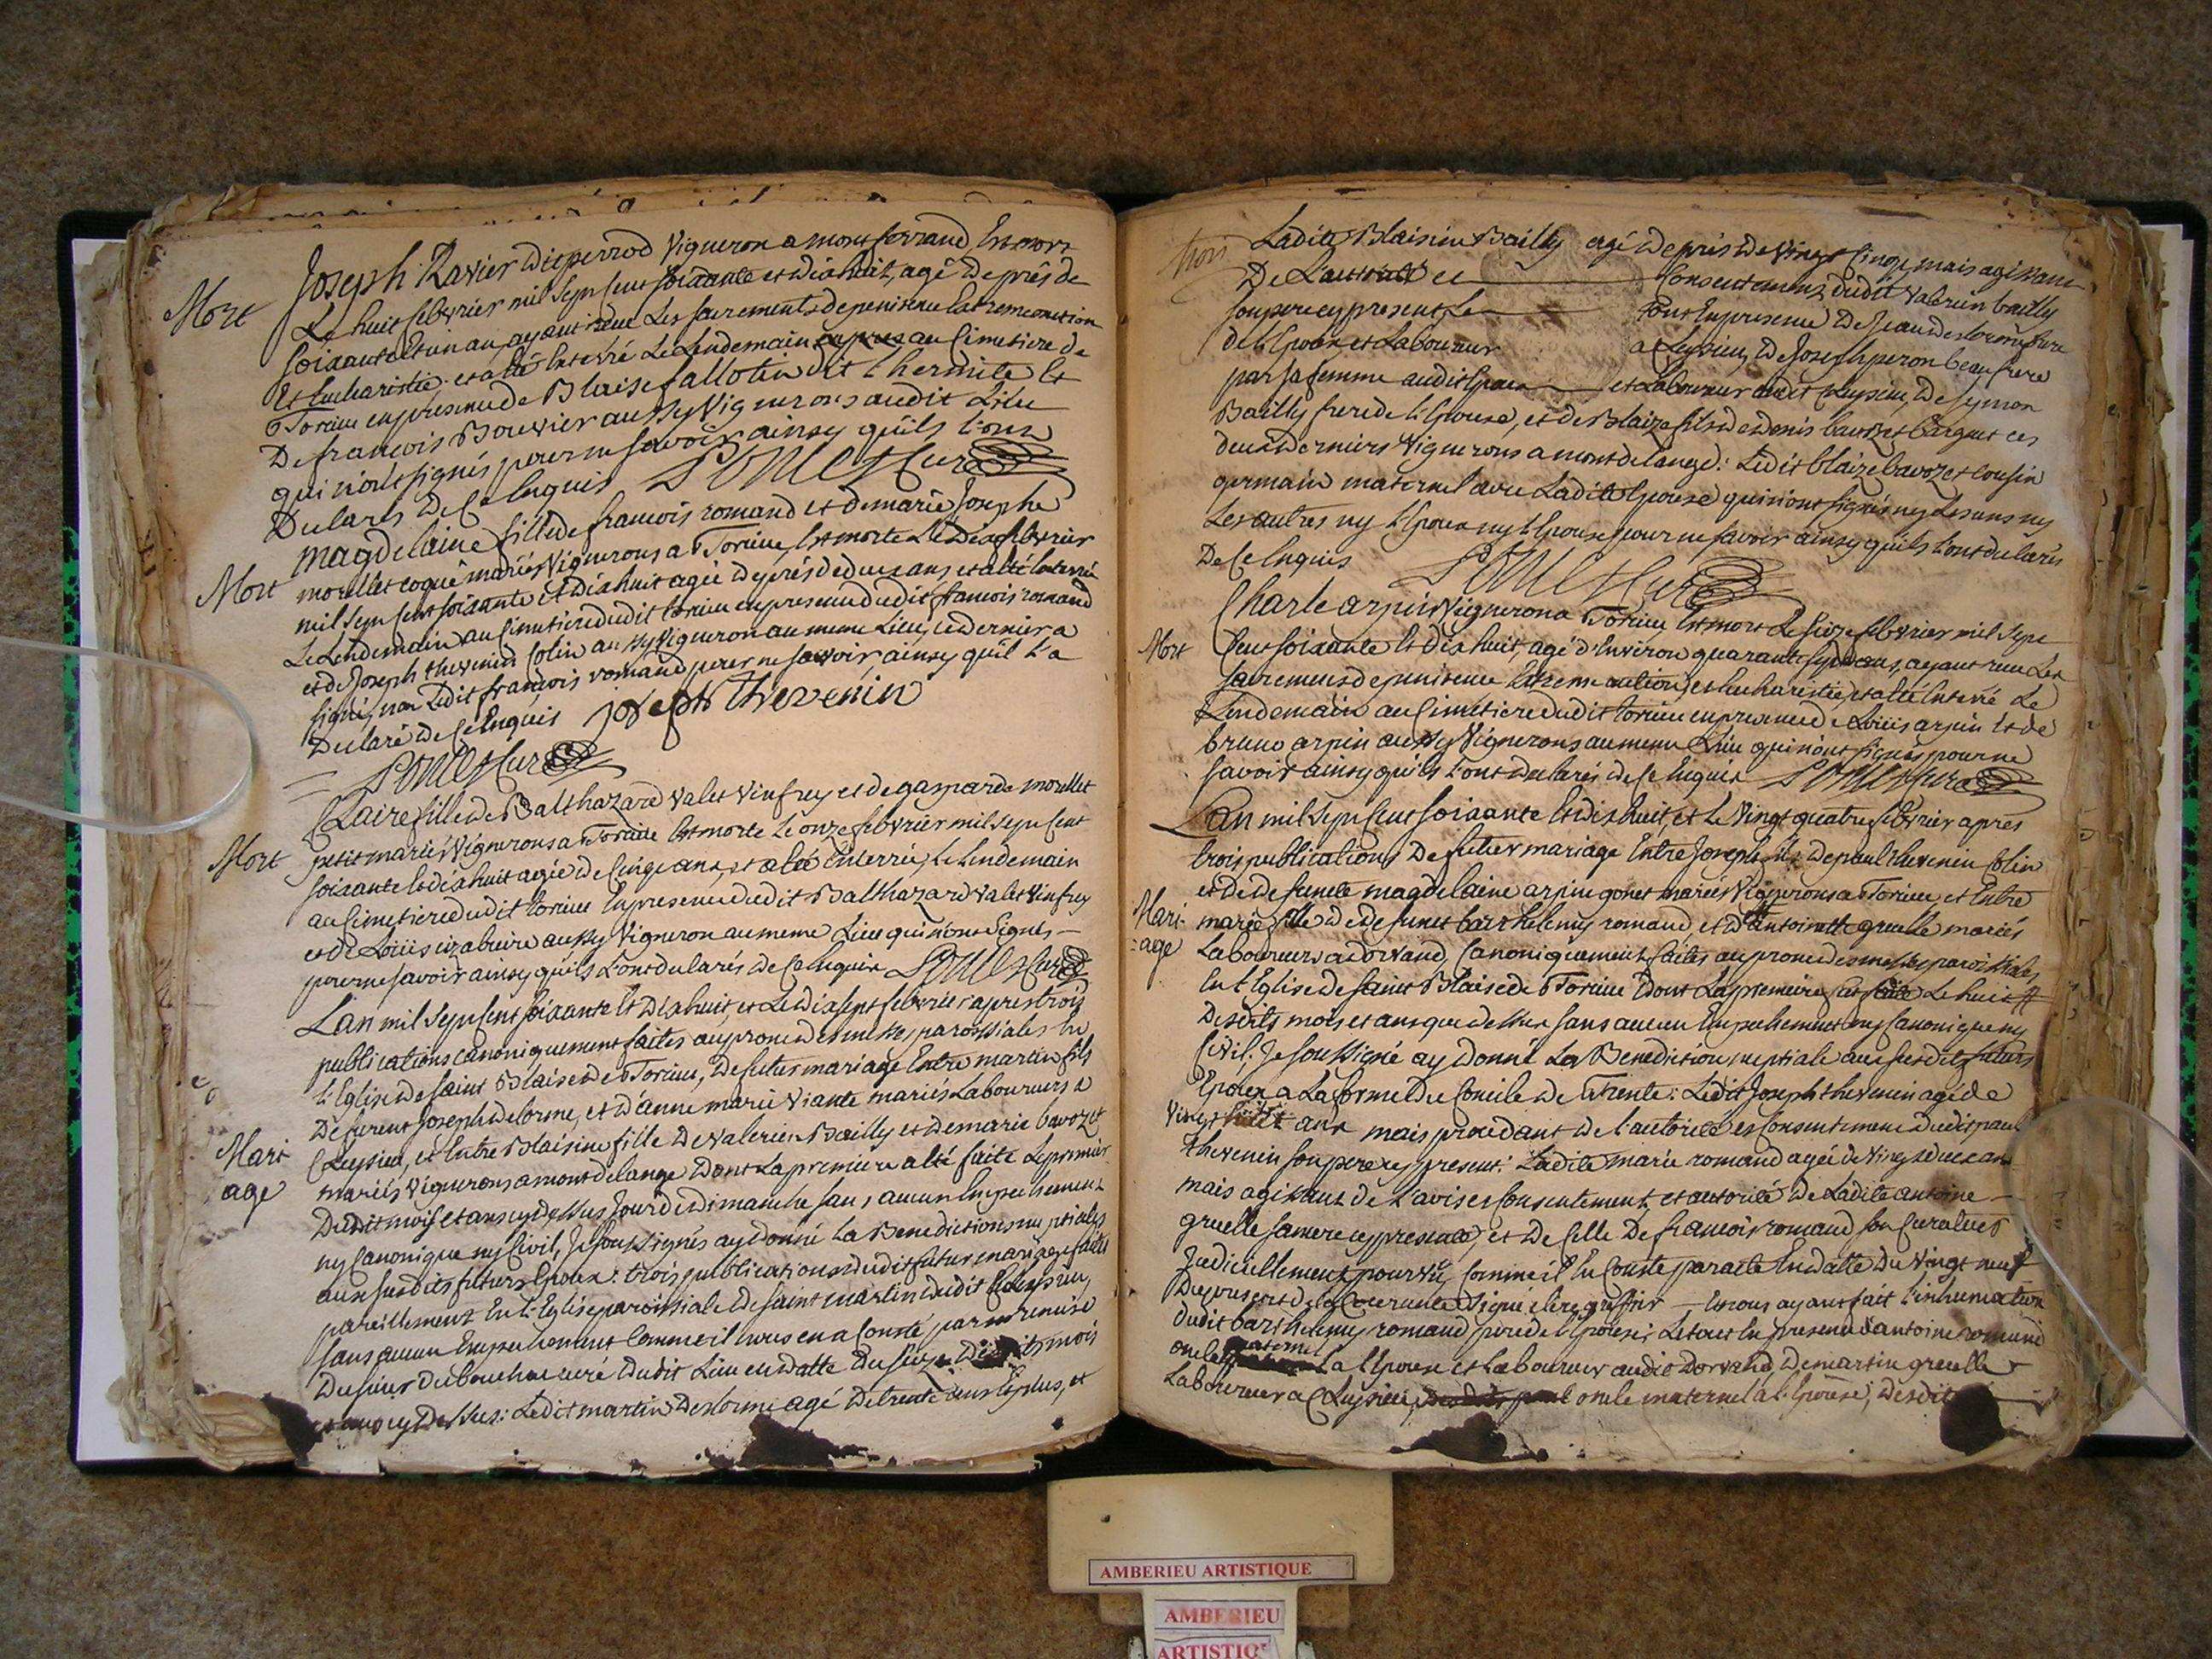 Mort
Joseph Ravier dit perrod Vigneron a montferrand, Est mort
Le huit febvrier mil sept cent soixante et dix huit, agé de près de
soixante et un an, ayant receu Les sacrements de penitence extremeonction
Et Eucharistie, et a été Enterré Le Lendemain au Cimetiere de
Torcieu en presence de Blaise fallotin dit L'hermite et
De francois Bouvier aussy Vignerons audit Lieu
qui n'ont signés pour ne savoir ainsy qu'ils l'ont
Declarés De Ce Enquis
Mort
magdelaine fille de francois romand et de marie Josephe
morellet coque mariés Vignerons a Torcieu, Est morte Le Dix febvrier
mil sept cent soixante et dix huit agée de près de deux ans, et a été Enterrée
Le Lendemain au Cimetiere dudit torcieu en presence dudit francois romand
et de Joseph thevenin Colin aussy Vigneron au meme Lieu, ce dernier a
signé, non Ledit francois romand pour ne savoir, ainsy qu'il l'a
Declaré De Ce Enquis joseph thevenin
Mort
Claire fille de Balthazard Valet Vinfrey et de gasparde morellet
petit mariés Vignerons a Torcieu Est morte Le onze febvrier mil sept Cent
soixante et dix huit agée de Cinq ans, et a été Enterrée, Le Lendemain
au Cimetiere dudit torcieu En presence dudit Balthazard Valet Vinfrey
et de Loüis aussy Vigneron au meme Lieu qui n'ont Signés
pour ne savoir ainsy qu'ils l'ont declarés de Ce Enquis
Mari
age
L'an mil sept cent soixante Et dix huit, et Le dix sept febvrier apres trois
publications canoniquement faites au prone des messes paroissiales En
L'Eglise de saint Blaise de Torcieu, De futur mariage Entre martin fils
De furent Joseph delorme, et d'anne marie Viante mariés Laboureurs a
Cleyzieu, et Entre Blaisine fille De Valerien Bailly et de marie bavozet
mariés Vignerons a montdelange Dont La premiere a été faite Le premier
Dudit mois et an cy dessus Jour de dimanche sans aucun Empechement
ny Canonique ny Civil, Je soussignés ay donné La Benediction nuptiale
aux susdits futurs Epoux: trois publications dudit futur mariage faites
pareillement En L'Eglise paroissiale De saint martin dudit Cleyzieu,
sans aucun Empechement Comme il nous en a Conste par remise
Du sieur Dubouchu curé Dudit Lieu en datte Du seize mois
et an cy Dessus: Ledit martin Delorme agé De trente ans Et plus, et
trois
Ladite Blaisine Bailly agé de près de Vingt Cinq, mais agissant
De L'autorité et Consentement, dudit Valerien bailly
son pere cy present, Le tout En presence De Jean delorme frere
de L'Epoux et Laboureur a Cleyzieu, De Joseph peron beau frere
par sa femme audit Epoux et Laboureur audit Cleyzieu, De symon
Bailly frere de L'Epouse, et de Blaize fils de denis bavozet Carguet ces
deux derniers Vignerons a montdelange: Ledit blaize bavozet cousin
germain maternel avec Ladite Epouse qui n'ont signés ny Les uns ny
Les autres ny L'Epoux ny L'Epouse pour ne savoir ainsy qu'ils l'ont declarés
De Ce Enquis
Mort
Charle arpin Vigneron a Torcieu Est mort Le seize febvrier mil sept
Cent soixante Et dix huit, agé d'Environ quarante sept ans, ayant receu Les
sacremens de penitence Extreme onction, et Eucharistie, et a été Enterré Le
Lendemain au Cimetiere dudit torcieu en presence de Loüis arpin Et de
bruno arpin aussy Vignerons au meme Lieu qui n'ont signés pour ne
savoir ainsy qu'ils l'ont declarés de Ce Enquis
Mari-
:age
L'an mil sept Cent soixante Et dix huit, et Le Vingt quatre febvrier après
trois publications De futur mariage Entre Joseph fils de paul thevenin Colin
et de defuncte magdelaine arpin gonet mariés Vignerons a Torcieu, et Entre
marie fille de defunct barthelemy romand, et d'antoinette gruelle mariés
Laboureurs a dorvand, Canoniquement faites au prone des messes paroissiales
En L'Eglise de saint Blaise de Torcieu Dont La premiere Le huit
Desdits mois et an que dessus sans aucun Empechement ny Canonique ny
Civil. Je soussigné ay Donné La Benediction nuptiale aux susdits futurs
Epoux a La forme Du Concile de Trente: Ledit Joseph thevenin agé de
Vingt huit ans mais procedant de L'autorité et Consentement dudit paul
thevenin son pere cy present: Ladite marie romand agée de Vingt deux ans
mais agissant de L'avis et Consentement, et autorité de Ladite antoine
gruelle sa mere cy presente, et De Celle De francois romand son Curateur
Judiciellement pourvu, Comme il En Conste par acte En datte Du Vingt neuf
Signé greffier Et nous ayant fait L'inhumation
dudit barthelemy romand pere de L'Epouse; Le tout En presence d'antoine romand
oncle paternel a L'Epouse et Laboureur audit Dorvand, De martin gruelle
Laboureur a Cleyzieu, oncle maternel a L'Epouse, desdits
AMBERIEU ARTISTIQUE
AMBERIEU
ARTISTIQ